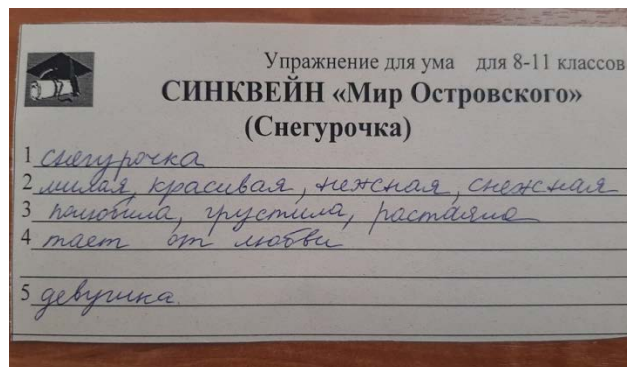 Упражнение для ума для 8-11 классов
СИНКВЕЙН «Мир Островского»
(Снегурочка)
1 снегурочка
2 милая, красивая, нежная, снежная
3 полюбила, грустила, растаяла
4 тает от любви
5 девушка.